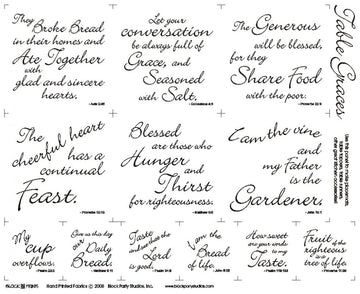 They
Broke Bread
in their homes and
Ate Together
with
glad and sincere
hearts.
- Acts 2:46
Let your
conversation
be always full of
Grace, and
Seasoned
with Salt.
- Colossians 4:6
The Generous
will be blessed,
for they
Share Food
with the poor.
- Proverbs 22:9
Table Graces
The
cheerful heart
has a
continual
Feast.
- Proverbs 15:15
Blessed
are those who
Hunger
and
Thirst
for righteousness.
- Matthew 5:6
I am the vine
and
my Father
is the
Gardener.
- John 15:1
My
cup
overflows.
- Psalm 23:5
Give us this day
our
Daily
Bread.
- Matthew 6:11
Taste
and see that the
Lord
is good.
- Psalm 34:8
I am the
Bread
of life.
- John 6:35
How sweet
are your words
to my
Taste.
- Psalm 119:103
Fruit of the
righteous
is a tree
of life.
- Proverbs 11:30
Hand Printed Fabrics © 2008 Block Party Studios, Inc. www.blockpartystudios.com